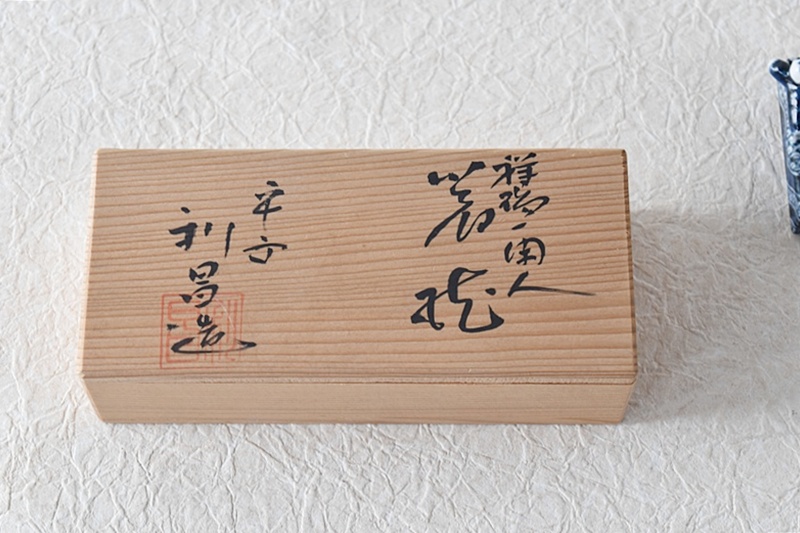 祥瑞一閑人
箸枕
平安
利昌造